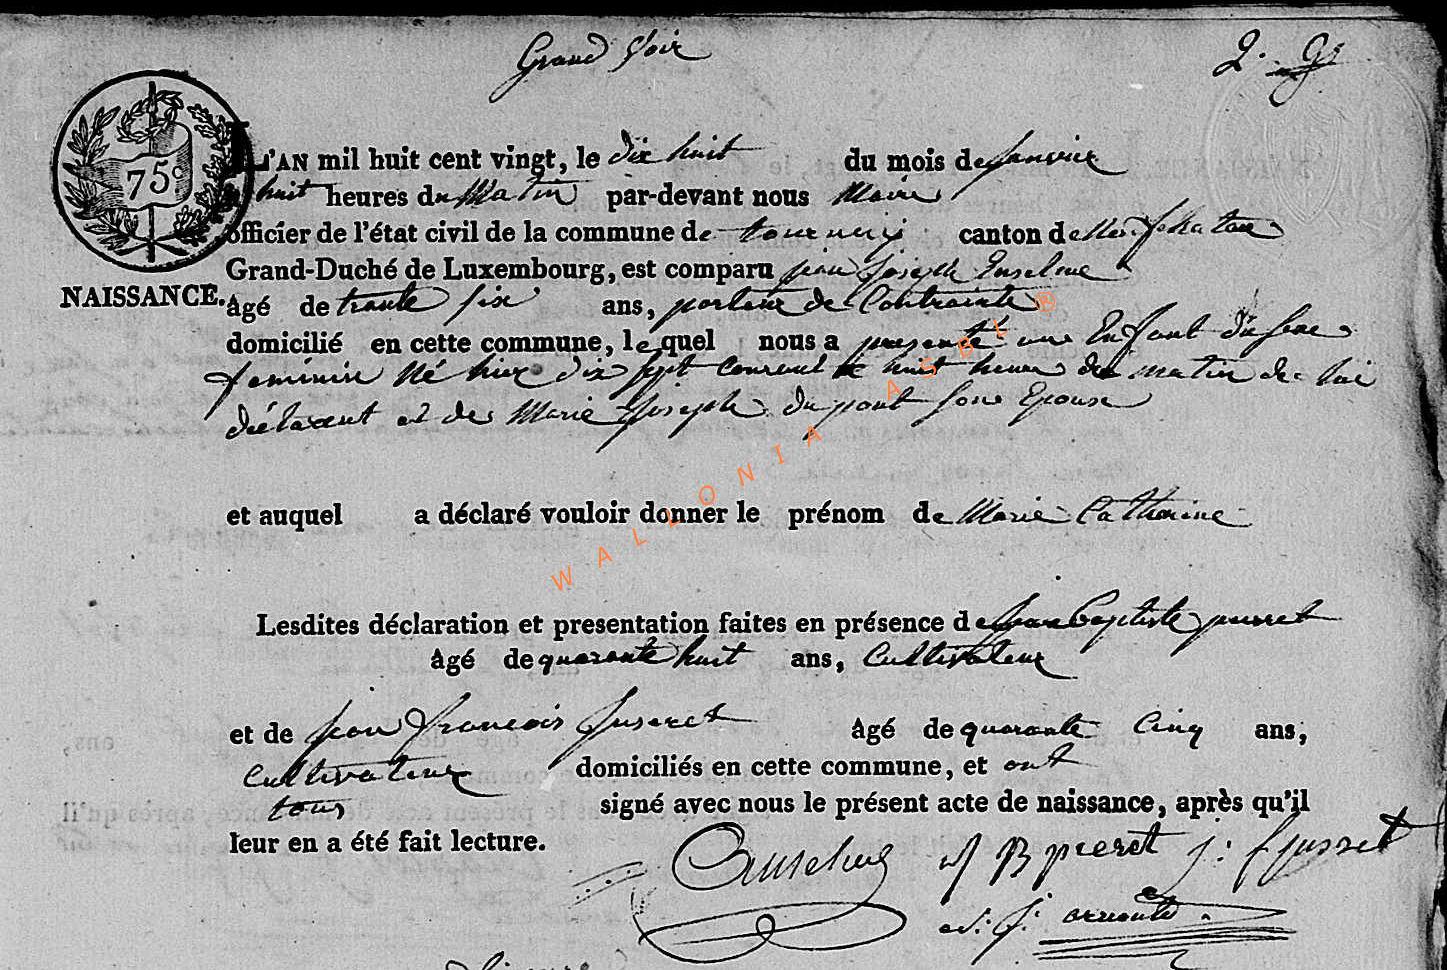 Grand Voir
2.
75 c
L'AN mil huit cent vingt, le dix huit du mois de Janvier
huit heures du Matin par-devant nous Maire
officier de l'état civil de la commune de tournay canton de Neufchatau
Grand-Duché de Luxembourg, est comparu jean Joseph Enselme
NAISSANCE. âgé de trante six ans, porteur de Contrainte
domicilié en cette commune, le quel nous a presenté une Enfant du sexe
feminin Né hier dix sept courant huit heure du matin de lui
déclarant et de Marie Joseph du pont sone Epouse
et auquel a déclaré vouloir donner le prénom de Marie Catherine
Lesdites déclaration et presentation faites en présence de jean Baptiste pierret
âgé de quarante huit ans, Cultivateur
et de jean francois jusseret âgé de quarante Cinq ans,
Cultivateur domiciliés en cette commune, et ont
tous signé avec nous le présent acte de naissance, après qu'il
leur en a été fait lecture.
Anselme J B pierret j: f jusseret
WALLONIA ASBL ®